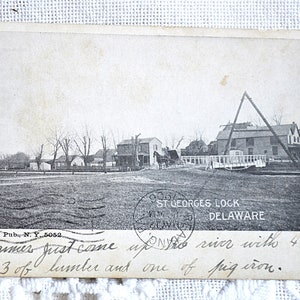 ST GEORGES LOCK
DELAWARE
Pub., N. Y. 5052
just come up the river with 4
3 of lumber and one of pig iron.